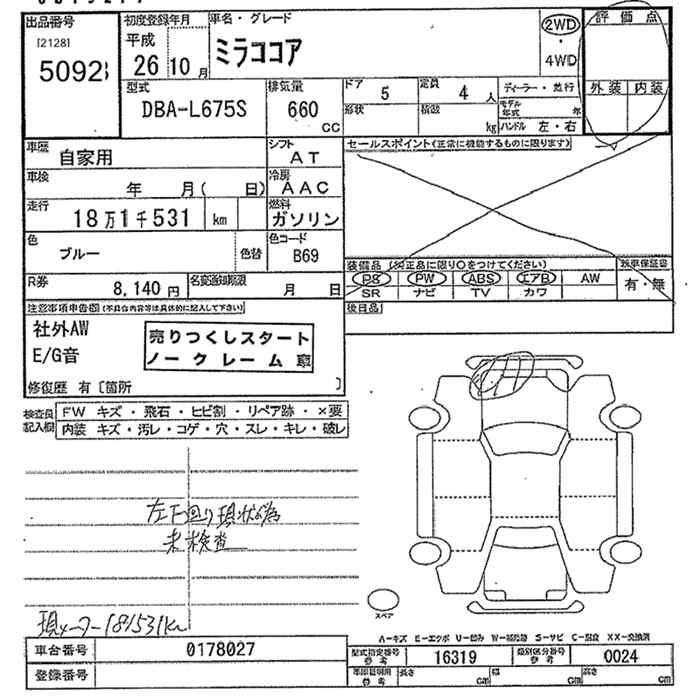 出品番号
[2128]
5092
初度登録年月
平成
26 10月
車名・グレード
ミラココア
2WD
・
4WD
評価点
外装 内装
型式
DBA-L675S
排気量
660
CC
ドア 5
定員 4 人
形状
積載 kg
ディーラー・並行
モデル年式 年
ハンドル 左・右
車歴
自家用
シフト
AT
セールスポイント(正常に機能するものに限ります)
車検
年 月( 日)
冷房
AAC
走行
18万1千531 km
燃料
ガソリン
色
ブルー
色替
色コード
B69
装備品 (※正品に限り○をつけてください)
PS PW ABS エアB AW
SR ナビ TV カワ
新車保証書
有・無
R券
8,140円
名変通知期限
月 日
後日品
注意事項申告欄(不具合内容等は具体的に記入して下さい)
社外AW
E/G音
売りつくしスタート
ノークレーム車
修復歴 有〔箇所 〕
検査員
記入欄
FW キズ・飛石・ヒビ割・リペア跡・×要
内装 キズ・汚レ・コゲ・穴・スレ・キレ・破レ
左下回り現状為
未検査
現メーター181531km
スペア
A−キズ E−エクボ U−凹み W−補修跡 S−サビ C−腐食 XX−交換済
車台番号
0178027
型式指定番号
参考
16319
類別区分番号
参考
0024
登録番号
車庫証明用
参考
長さ cm
幅 cm
高さ cm